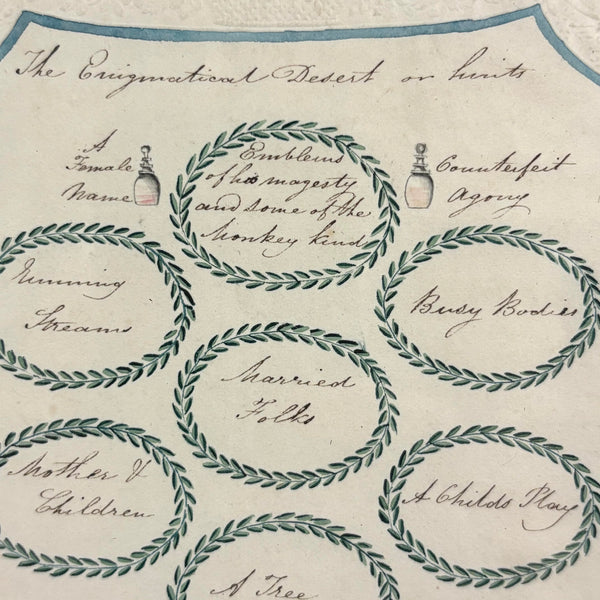 The Enigmatical Desert or hints
A
Female
Name
Emblems
of his magesty
and some of the
Monkey kind
Counterfeit
Agony
Running
Streams
Busy Bodies
Married
Folks
Mother &
Children
A Childs Play
A Tree